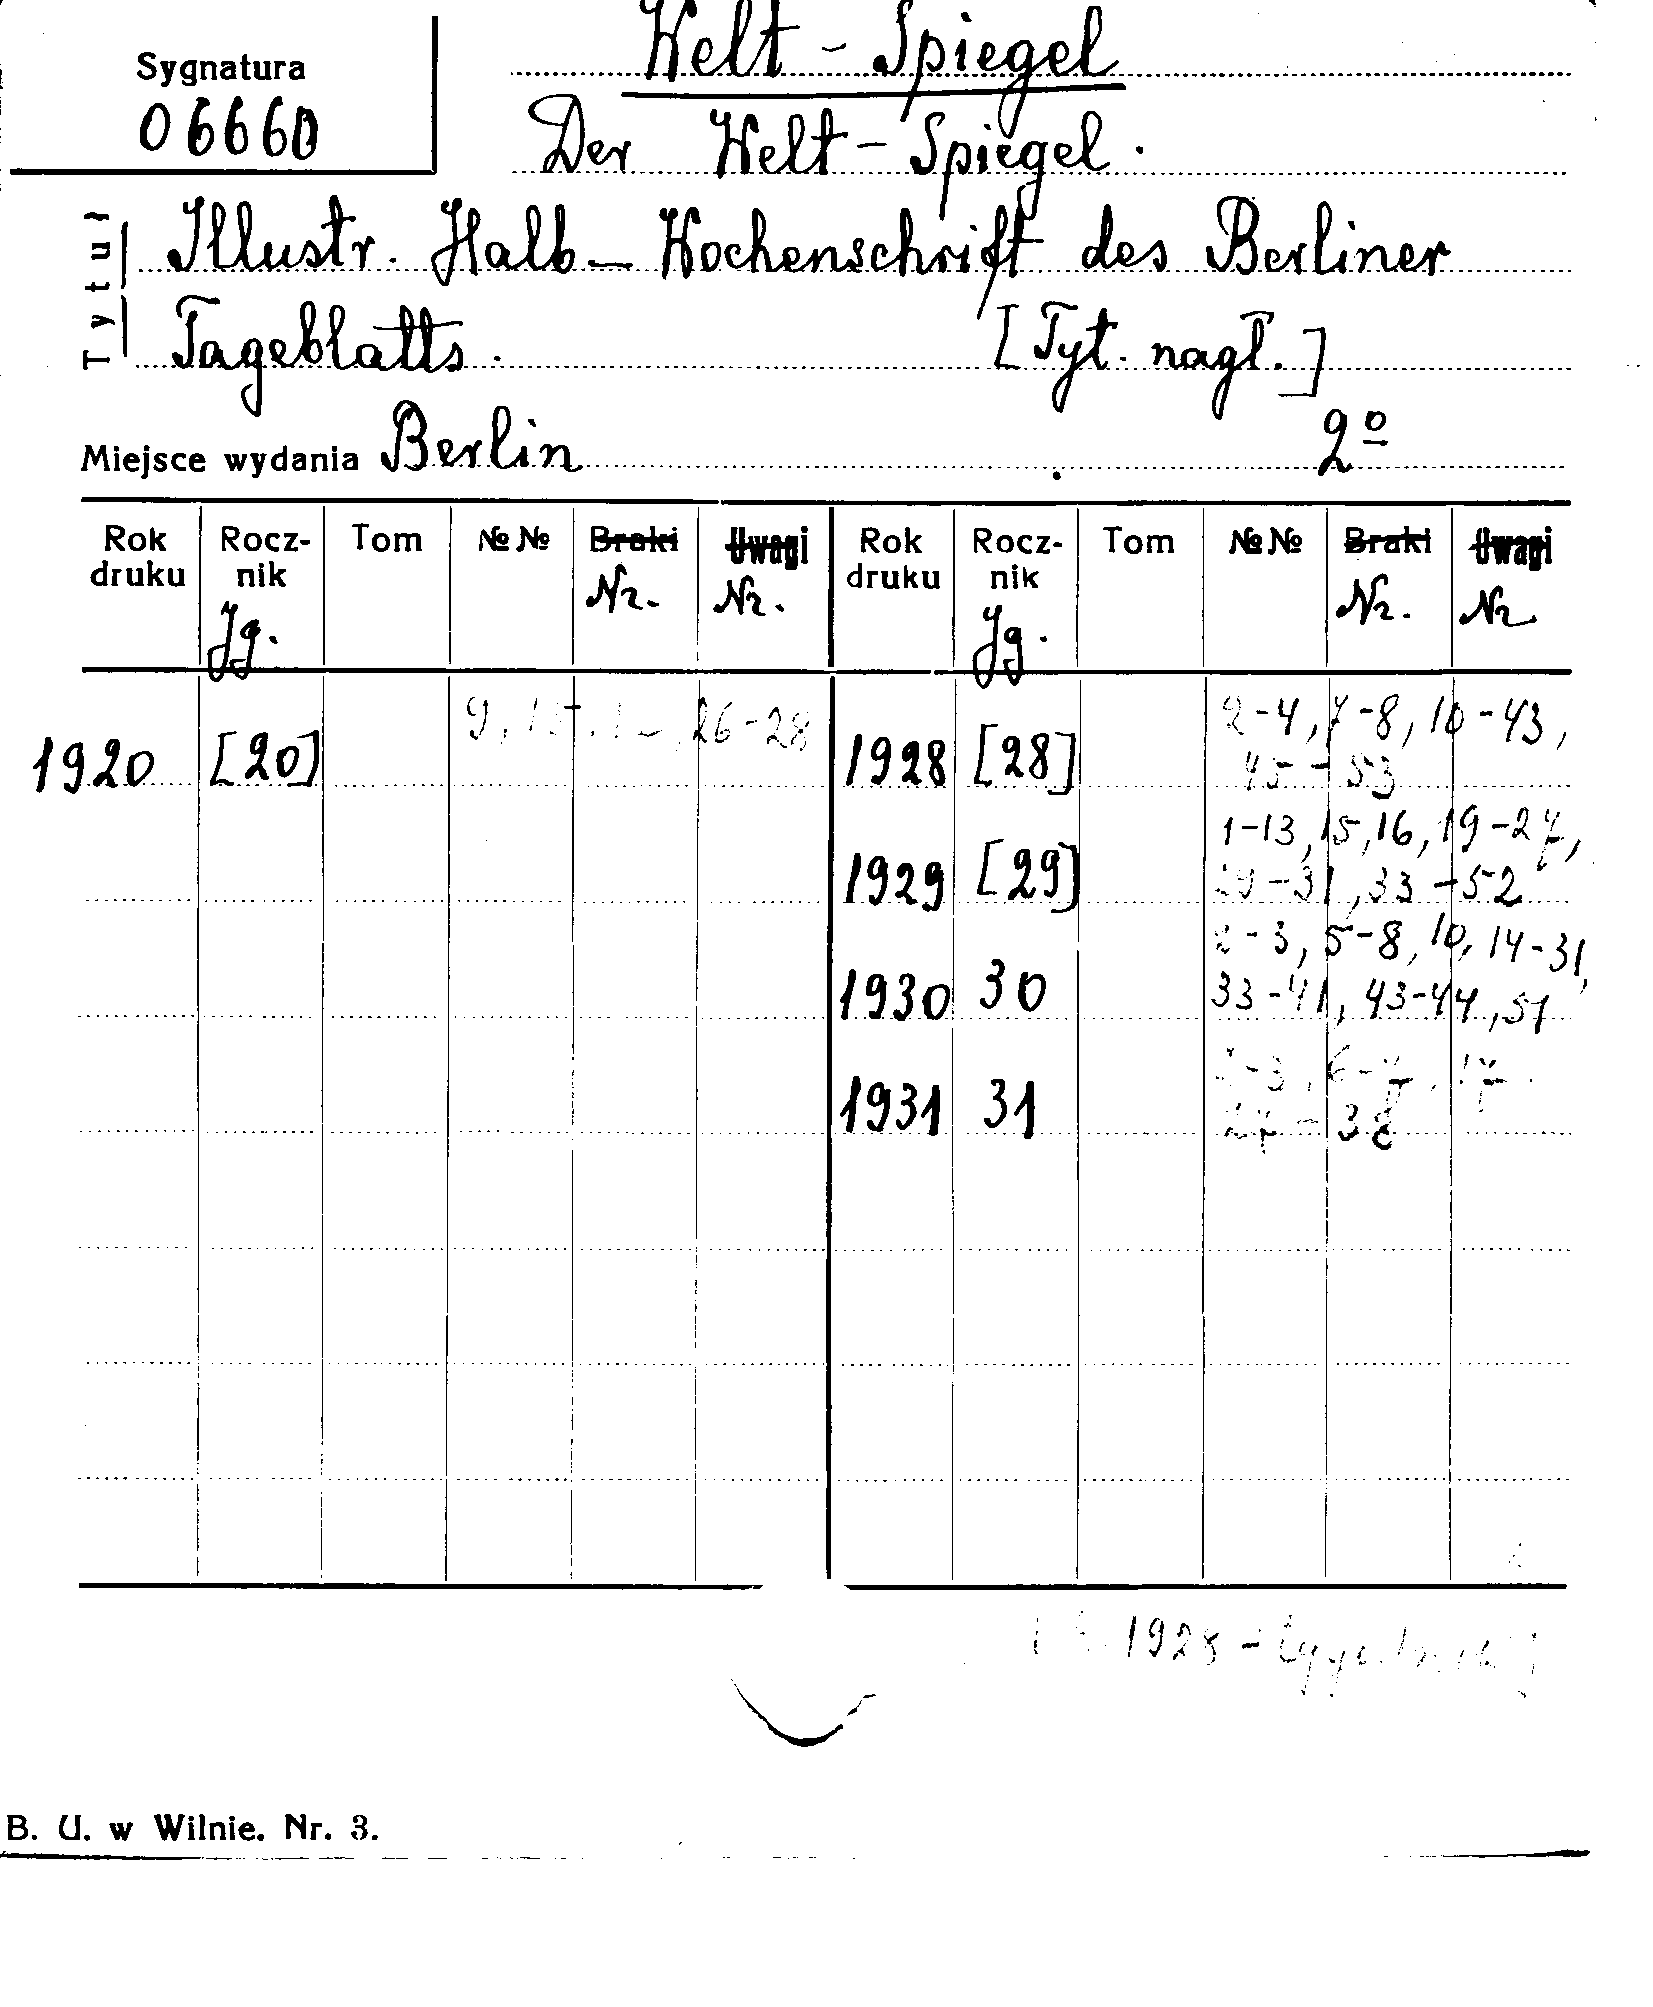 Welt - Spiegel
Sygnatura
06660
Der Welt - Spiegel.
Tytuł
Illustr. Halb - Wochenschrift des Berliner
Tageblatts. [Tyt. nagł.]
Miejsce wydania Berlin 2º
Rok druku Rocznik Tom №№ Braki Uwagi Rok druku Rocznik Tom №№ Braki Uwagi
Jg. Nr. Nr. Jg. Nr. Nr.
1920 [20] 9, 26-28
1928 [28] 2-4, 7-8, 10-43,
45-53
1929 [29] 1-13, 15, 16, 19-27,
29-31, 33-52
1930 30 2-3, 5-8, 10, 14-31,
33-41, 43-44, 51
1931 31 6-7, 17
27-38
1928 -
B. U. w Wilnie. Nr. 3.